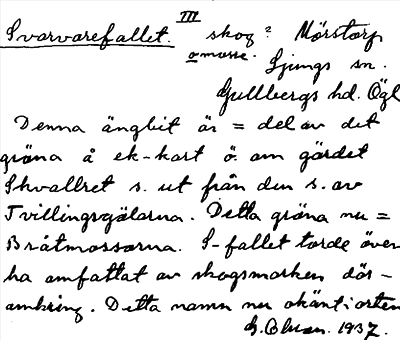 III
Svarvarefallet. skog? Mörstorp
o mosse. Ljungs sn.
Gullbergs hd. Ögl
Denna ängbit är = del av det
gröna å ek-kart ö. om gärdet
Skvallret s. ut från den s. av
Tvillingsgölarna. Detta gröna nu =
Bråtmossarna. S-fallet torde även
ha omfattat av skogsmarken där-
omkring. Detta namn nu okänt i orten
1937.